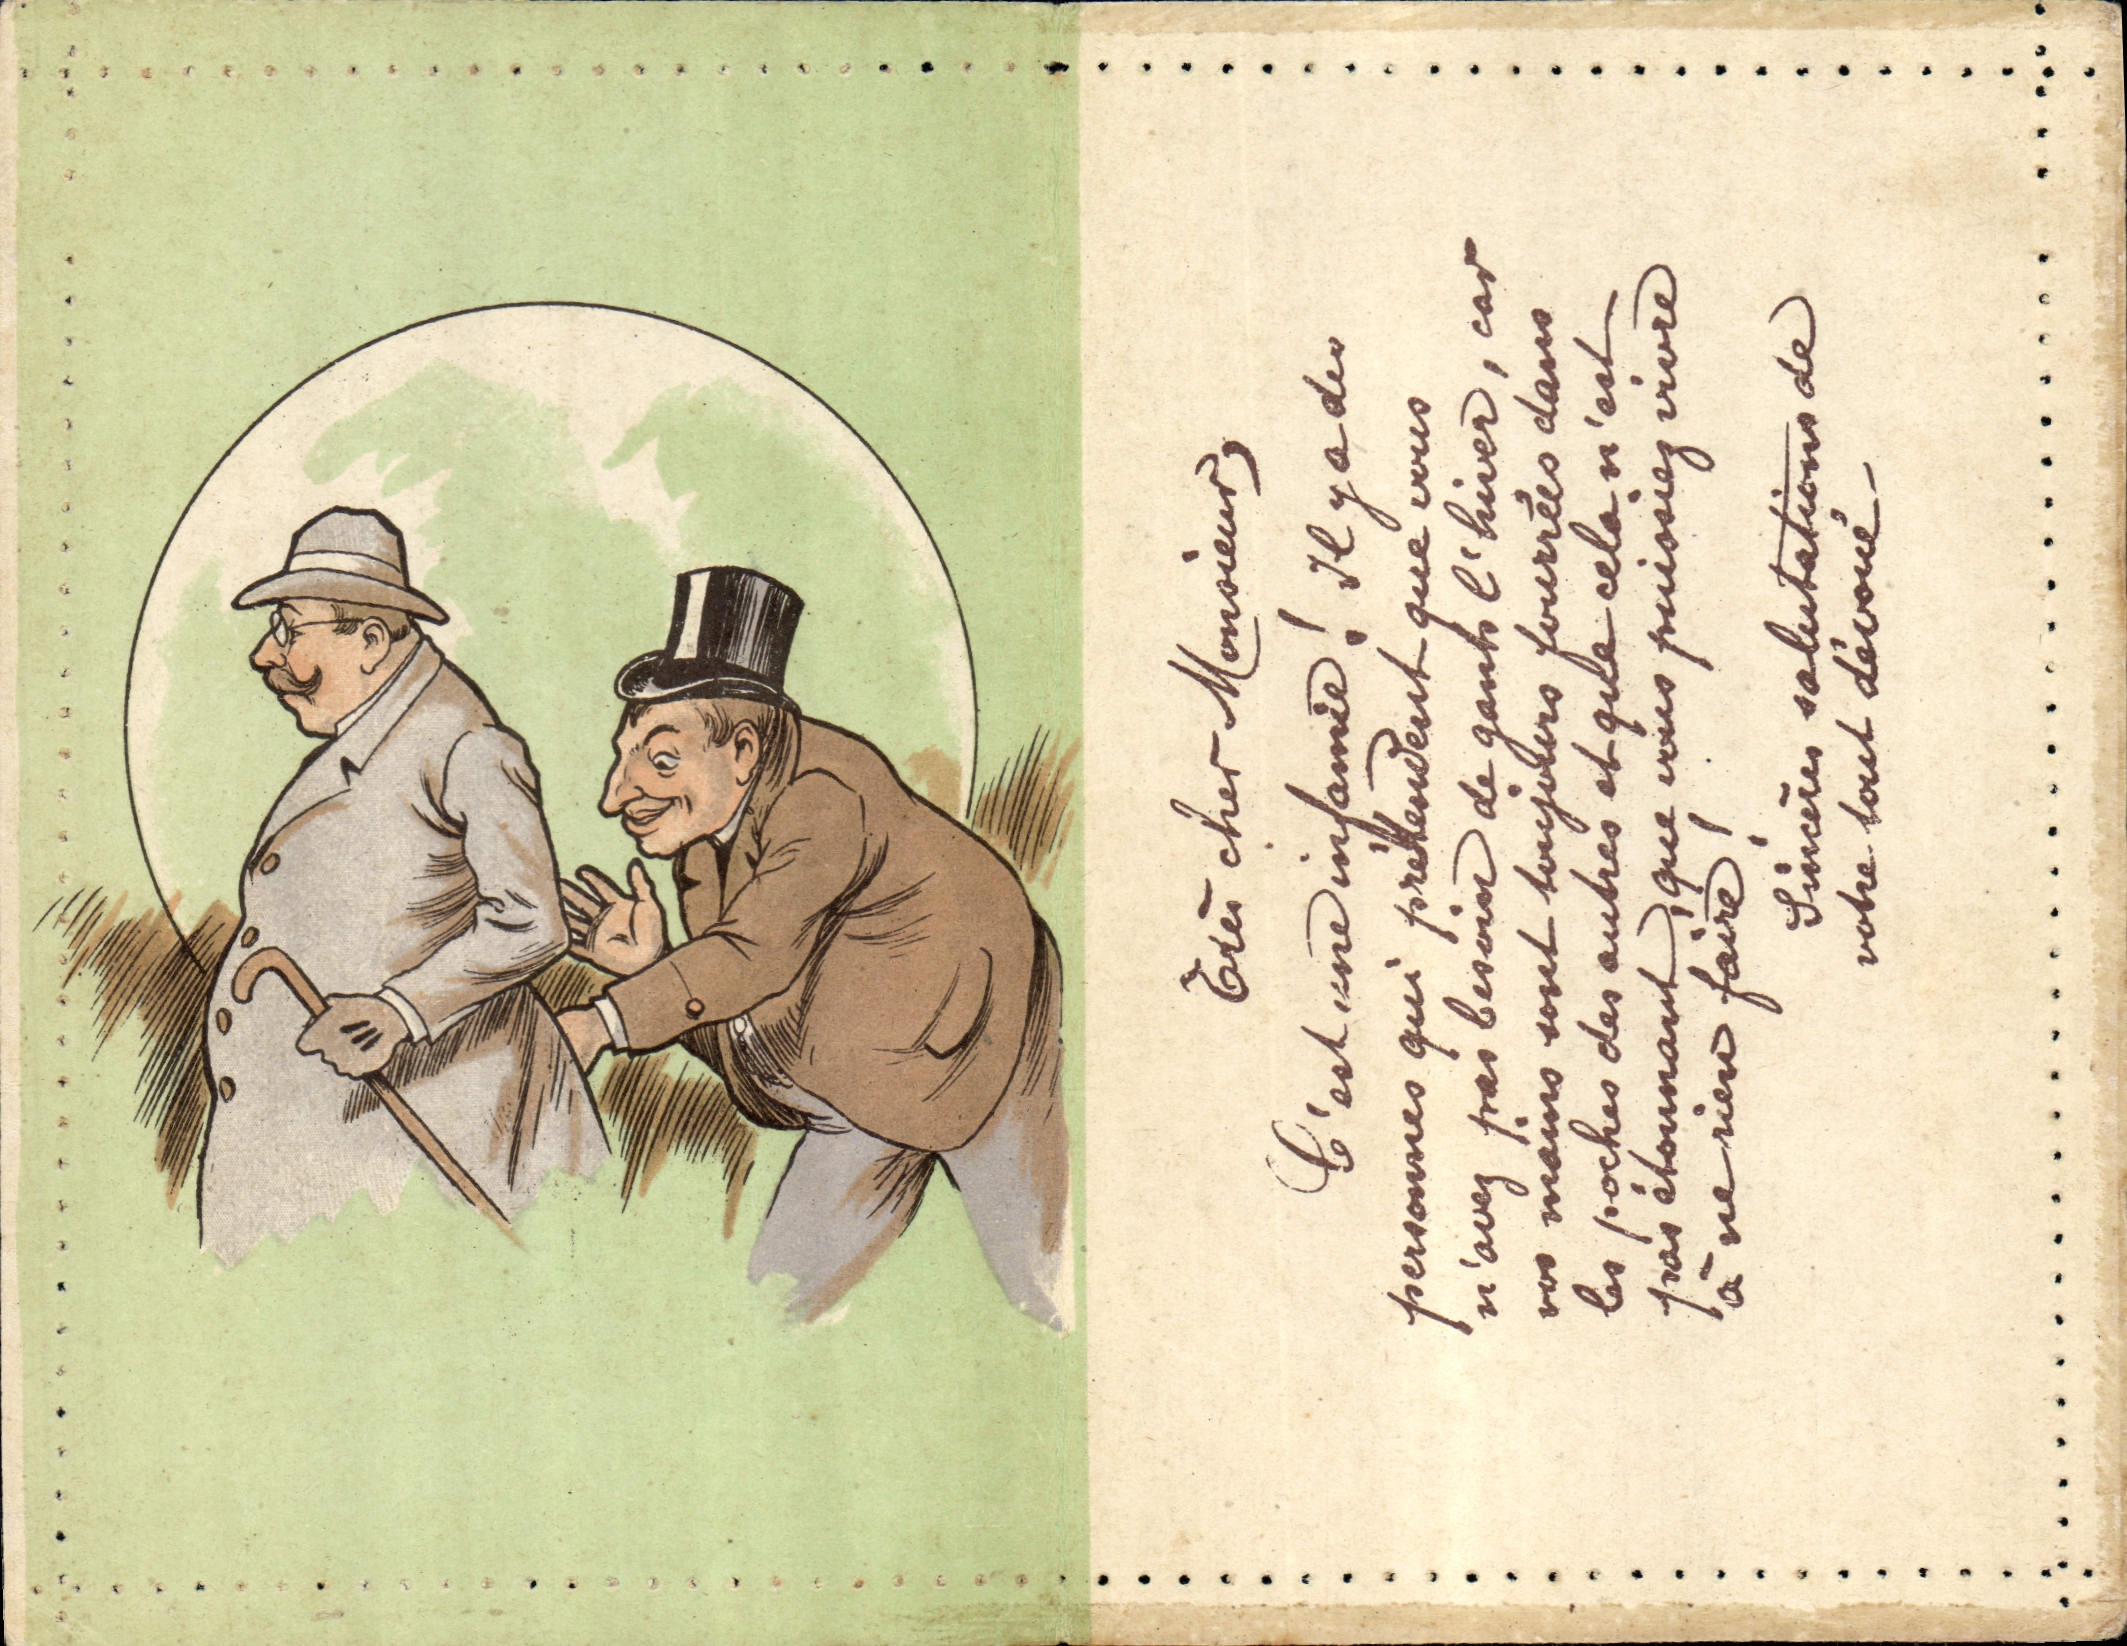 Très cher Monsieur,
C'est une infamie! Il y a des
personnes qui prétendent que vous
n'avez pas besoin de gants l'hiver, car
vos mains sont toujours fourrées dans
les poches des autres et que cela n'est
pas étonnant, que vous puissiez vivre
à ne rien faire!
Sincères salutations de
votre tout dévoué-